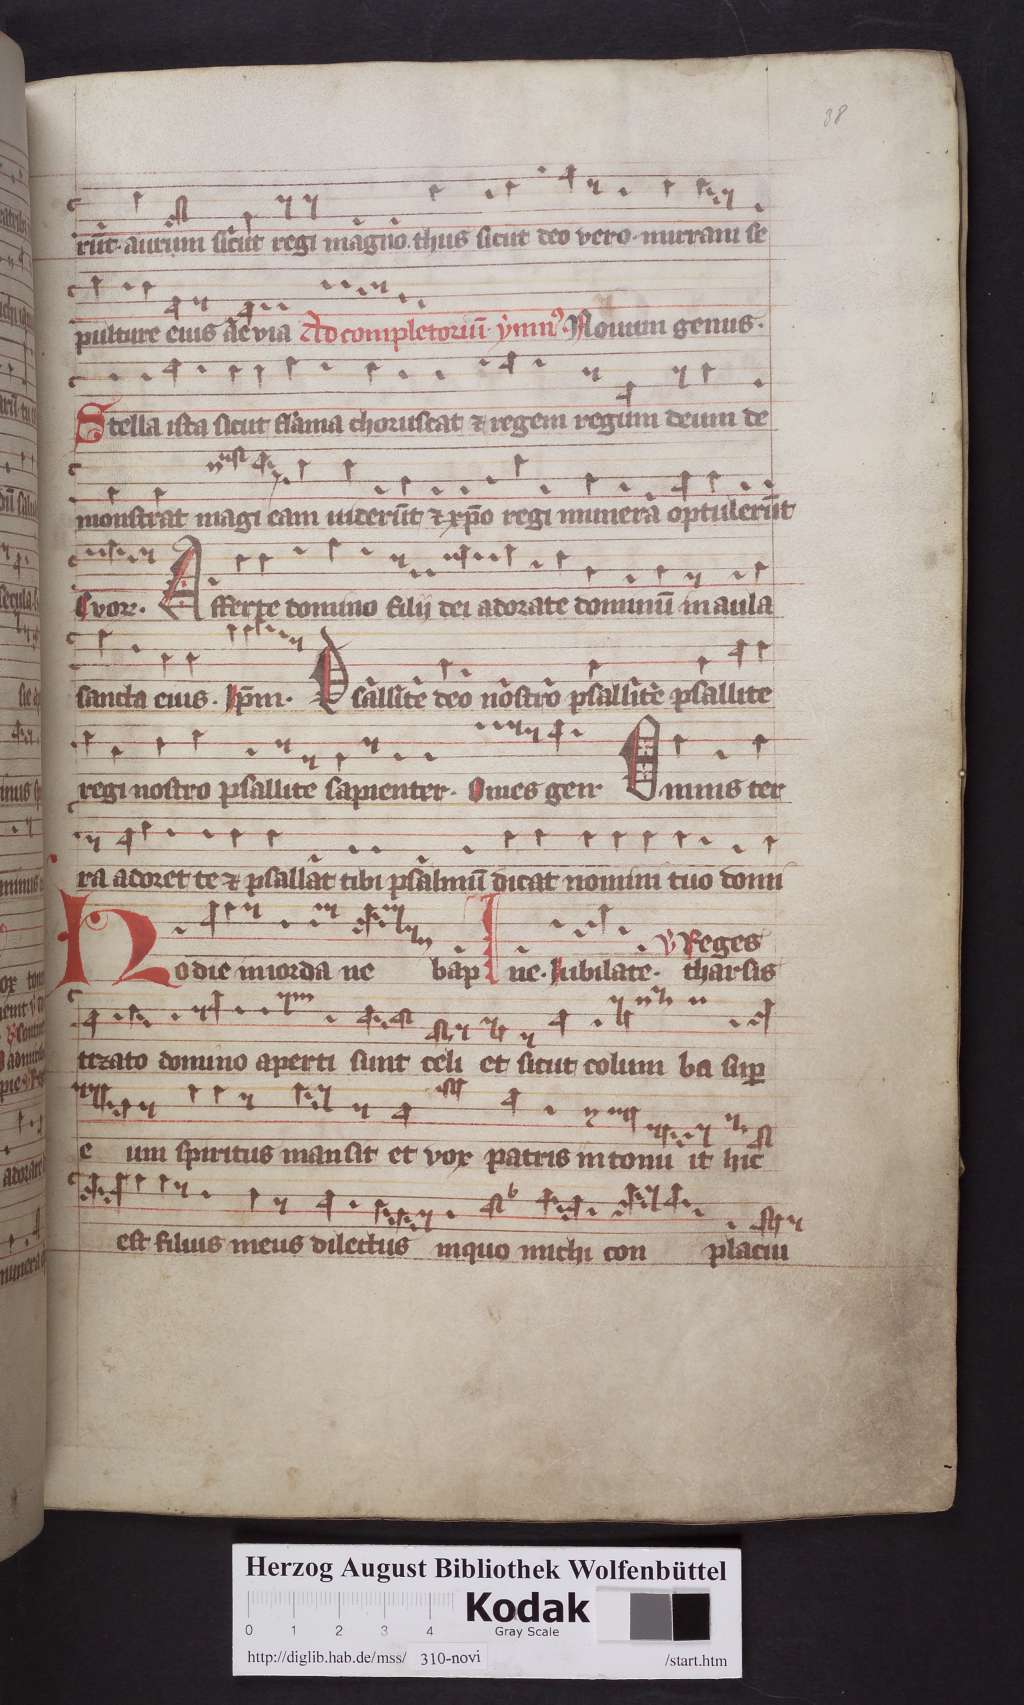 38
rūt. aurum sicut regi magno. thus sicut deo vero. mirram se
pulture eius aevia Ad completoriū ymn⁹. Nouum genus.
Stella ista sicut flāma choruscat ⁊ regem regum deum de
monstrat magi eam uiderūt ⁊ xp̄o regi munera optulerūt
Evor. Afferte domino filij dei adorate dominū in aula
sancta eius. Ip̄m. Psallite deo nostro psallite psallite
regi nostro psallite sapienter. Omes gen. Omnis ter
ra adoret te ⁊ psallat tibi psalmū dicat nomini tuo domi
Hodie in iorda ne bap ne. Iubilate. V Reges
tharsis
tizato domino aperti sunt celi et sicut colum ba sup
e um spiritus mansit et vox patris intonu it hic
est filius meus dilectus in quo michi con placui
Herzog August Bibliothek Wolfenbüttel
0 1 2 3 4
Kodak
Gray Scale
http://diglib.hab.de/mss/ 310-novi /start.htm